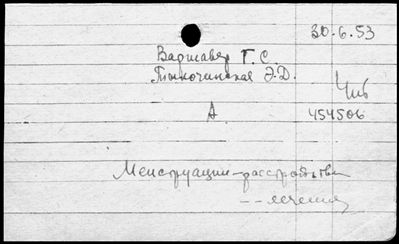 30.6.53
Варшавер Г. С.
Тыкочинская Э.Д.
Чиб
А 454506
Менструации-расстройства
-- лечение